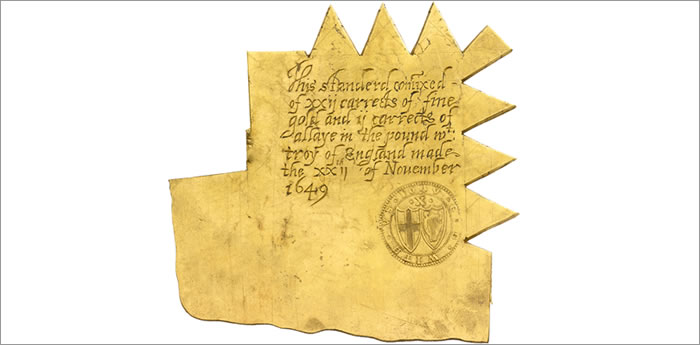 This standerd comixed
of xxij carrects of fine
gold and ij carrects of
allaye in the pound wt.
troy of England made
the XXII of November
1649